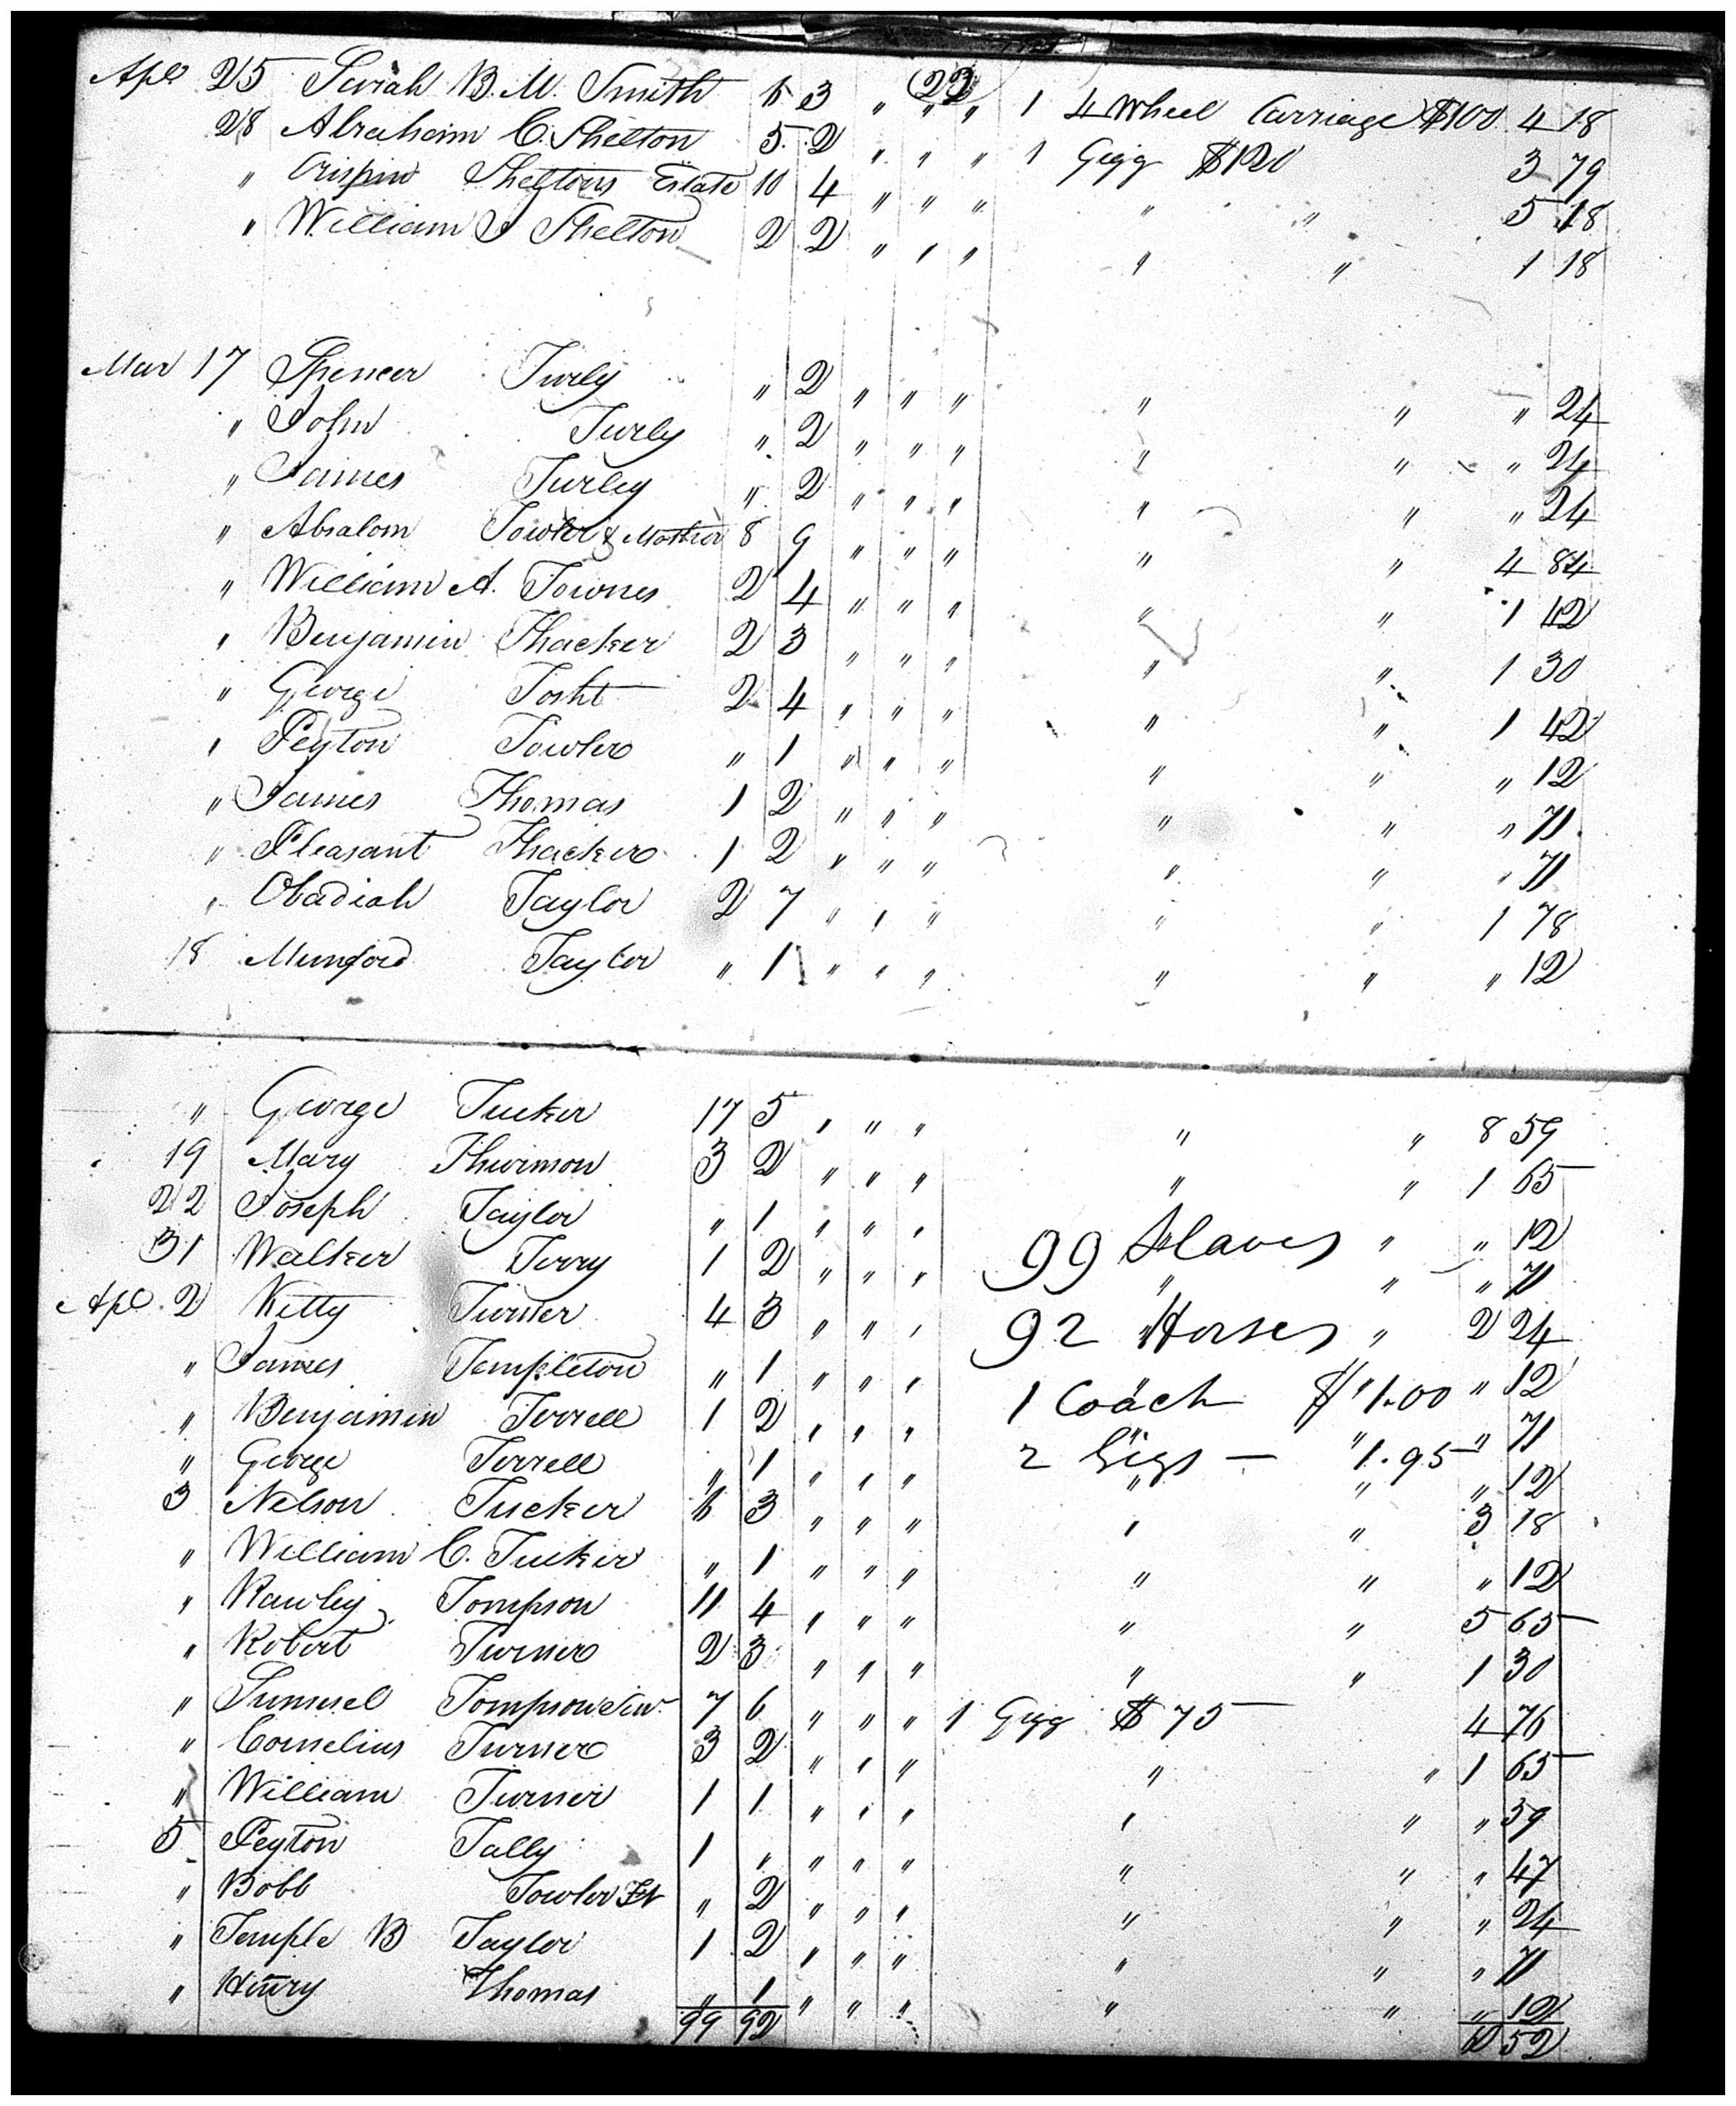 (22)
Apl 25 Sarah B. M. Smith 6 3 " " " 1 4 Wheel Carriage $100 4 18
28 Abraham C. Shelton 5 2 " " " 1 Gigg $120 3 79
" Crispin Sheltons Estate 10 4 " " " " " 5 18
" William S Shelton 2 2 " " " " " 1 18
Mar 17 Spencer Turly " 2 " " " " " " 24
" John Turly " 2 " " " " " " 24
" James Turley " 2 " " " " " " 24
" Absalom Towler & Mother 8 9 " " " " " 4 84
" William A. Townes 2 4 " " " " " 1 42
" Benjamin Thacker 2 3 " " " " " 1 30
" George Tosht 2 4 " " " " " 1 42
" Peyton Towler " 1 " " " " " " 12
" James Thomas 1 2 " " " " " " 71
" Pleasant Thacker 1 2 " " " " " " 71
" Obadiah Taylor 2 7 " " " " " 1 78
18 Munford Taylor " 1 " " " " " " 12
" George Tucker 17 5 " " " " " 8 59
19 Mary Thurmon 3 2 " " " " " 1 65
22 Joseph Taylor " 1 " " " 99 Slaves " " 12
31 Walker Terry 1 2 " " " " " " 71
Apl. 2 Kitty Turner 4 3 " " " 92 Horses " 2 24
" James Templeton " 1 " " " 1 Coach $ 1.00 " 12
" Benjamin Terrell 1 2 " " " " " " 71
" George Terrell " 1 " " " 2 Gigs — " 1.95 " 12
3 Nelson Tucker 6 3 " " " " " 3 18
" William C. Tucker " 1 " " " " " " 12
" Rawley Tompson 11 4 " " " " " 5 65
" Robert Turner 2 3 " " " " " 1 30
" Samuel Tompson Sen 7 6 " " " 1 Gigg $75 4 76
" Cornelius Turner 3 2 " " " " " 1 65
" William Turner 1 1 " " " " " " 59
5 Peyton Tally 1 " " " " " " " 47
" Bobb Towler " 2 " " " " " " 24
" Temple B Taylor 1 2 " " " " " " 71
" Henry Thomas " 1 " " " " " " 12
99 92 52